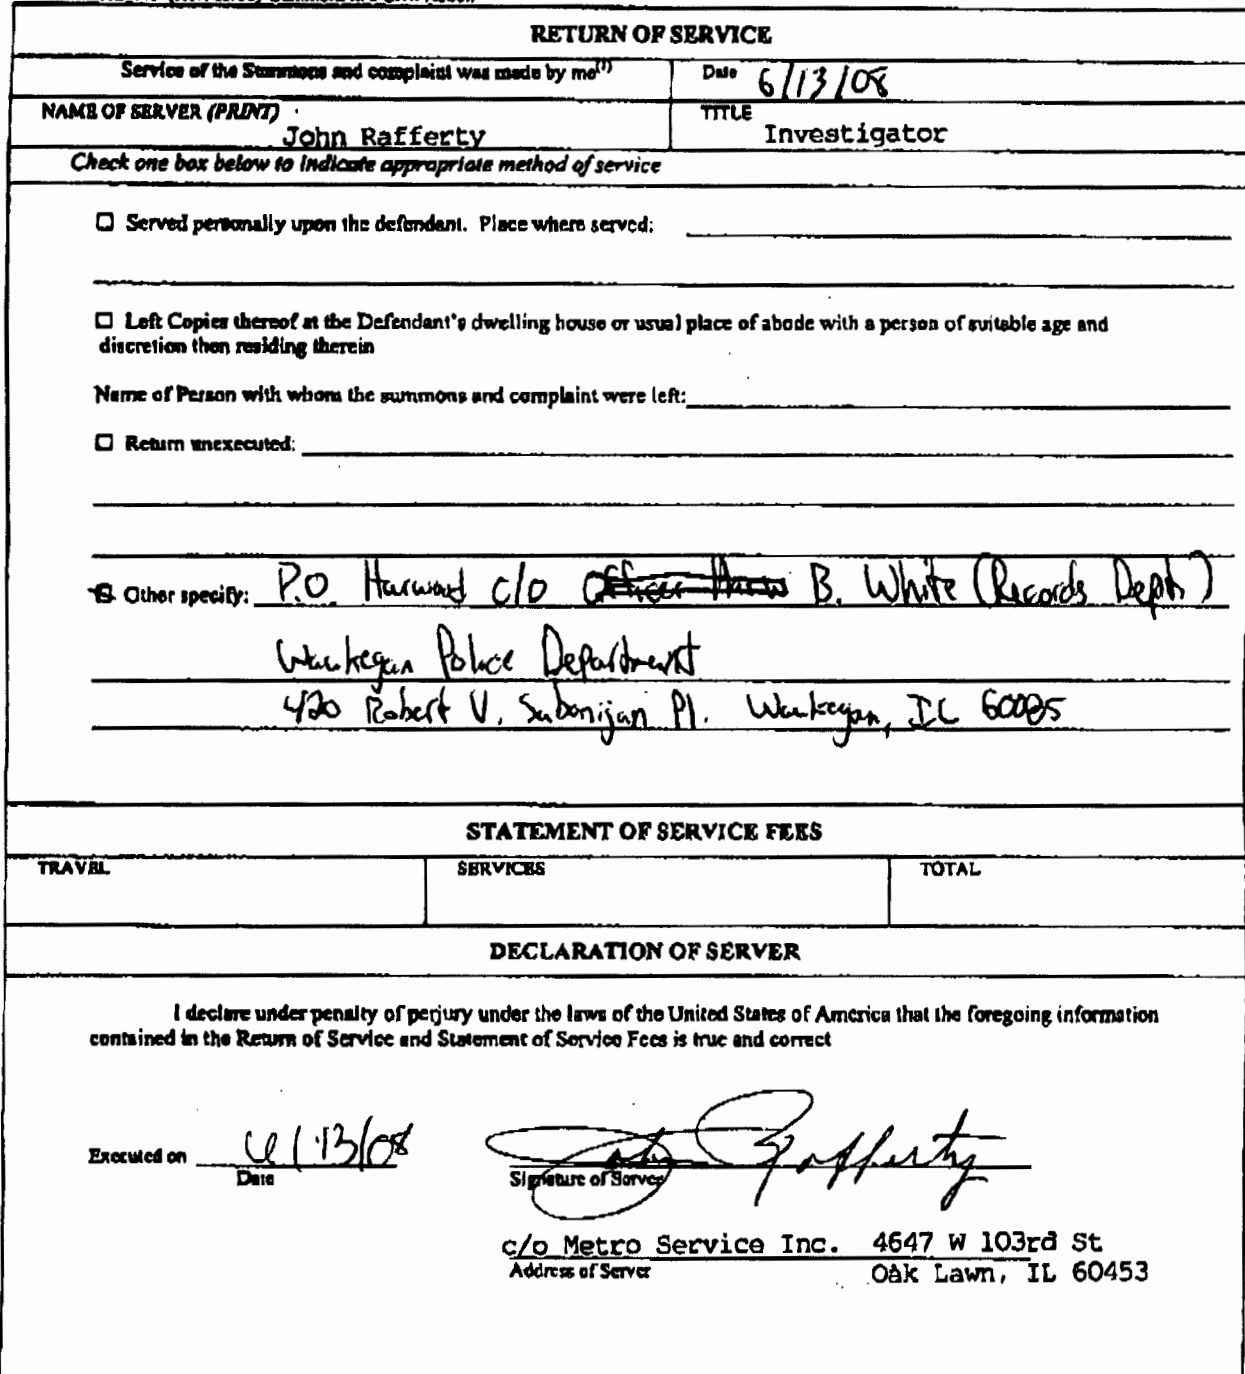 RETURN OF SERVICE
Service of the Summons and complaint was made by me(1)
Date 6/13/08
NAME OF SERVER (PRINT)
John Rafferty
TITLE
Investigator
Check one box below to indicate appropriate method of service
☐ Served personally upon the defendant. Place where served:
☐ Left Copies thereof at the Defendant's dwelling house or usual place of abode with a person of suitable age and
discretion then residing therein
Name of Person with whom the summons and complaint were left:
☐ Return unexecuted:
Other specify: P.O. Harwood c/o B. White (Records Dept.)
Waukegan Police Department
420 Robert V. Sabonijan Pl. Waukegan, IL 60085
STATEMENT OF SERVICE FEES
TRAVEL
SERVICES
TOTAL
DECLARATION OF SERVER
I declare under penalty of perjury under the laws of the United States of America that the foregoing information
contained in the Return of Service and Statement of Service Fees is true and correct
Executed on 6/13/08
Date
John Rafferty
Signature of Server
c/o Metro Service Inc. 4647 W 103rd St
Address of Server
Oak Lawn, IL 60453